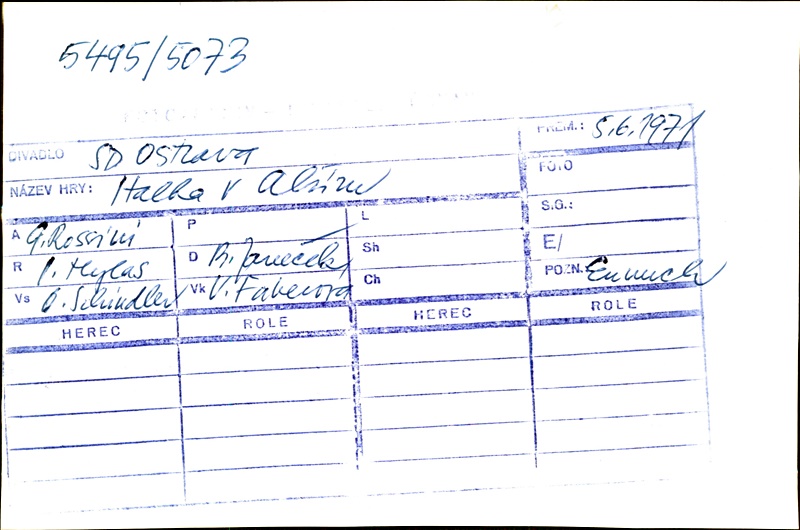 5495/5073
DIVADLO SD Ostrava
PREM.: 5.6.1971
NÁZEV HRY: Italka v Alžíru
FOTO
A G. Rossini
P
L
S.G.:
R I. Hylas
D B. Janeček
Sh
E/
Vs O. Schindler
Vk V. Faberová
Ch
POZN. Eunuch
HEREC ROLE HEREC ROLE